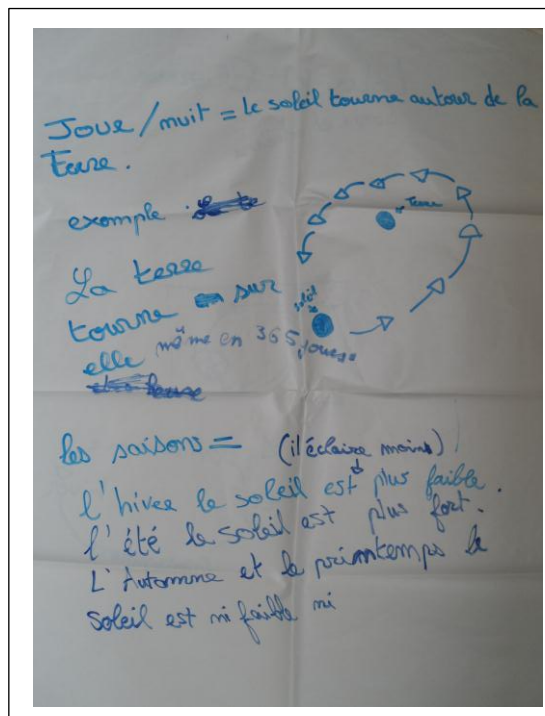 Jour/nuit = le soleil tourne autour de la
Terre.
exemple :
Terre
La terre
tourne sur
soleil
elle même en 365 jours
les saisons = (il éclaire moins)
l'hiver le soleil est plus faible.
l'été le soleil est plus fort.
L'Automne et le primtemps le
soleil est ni faible ni